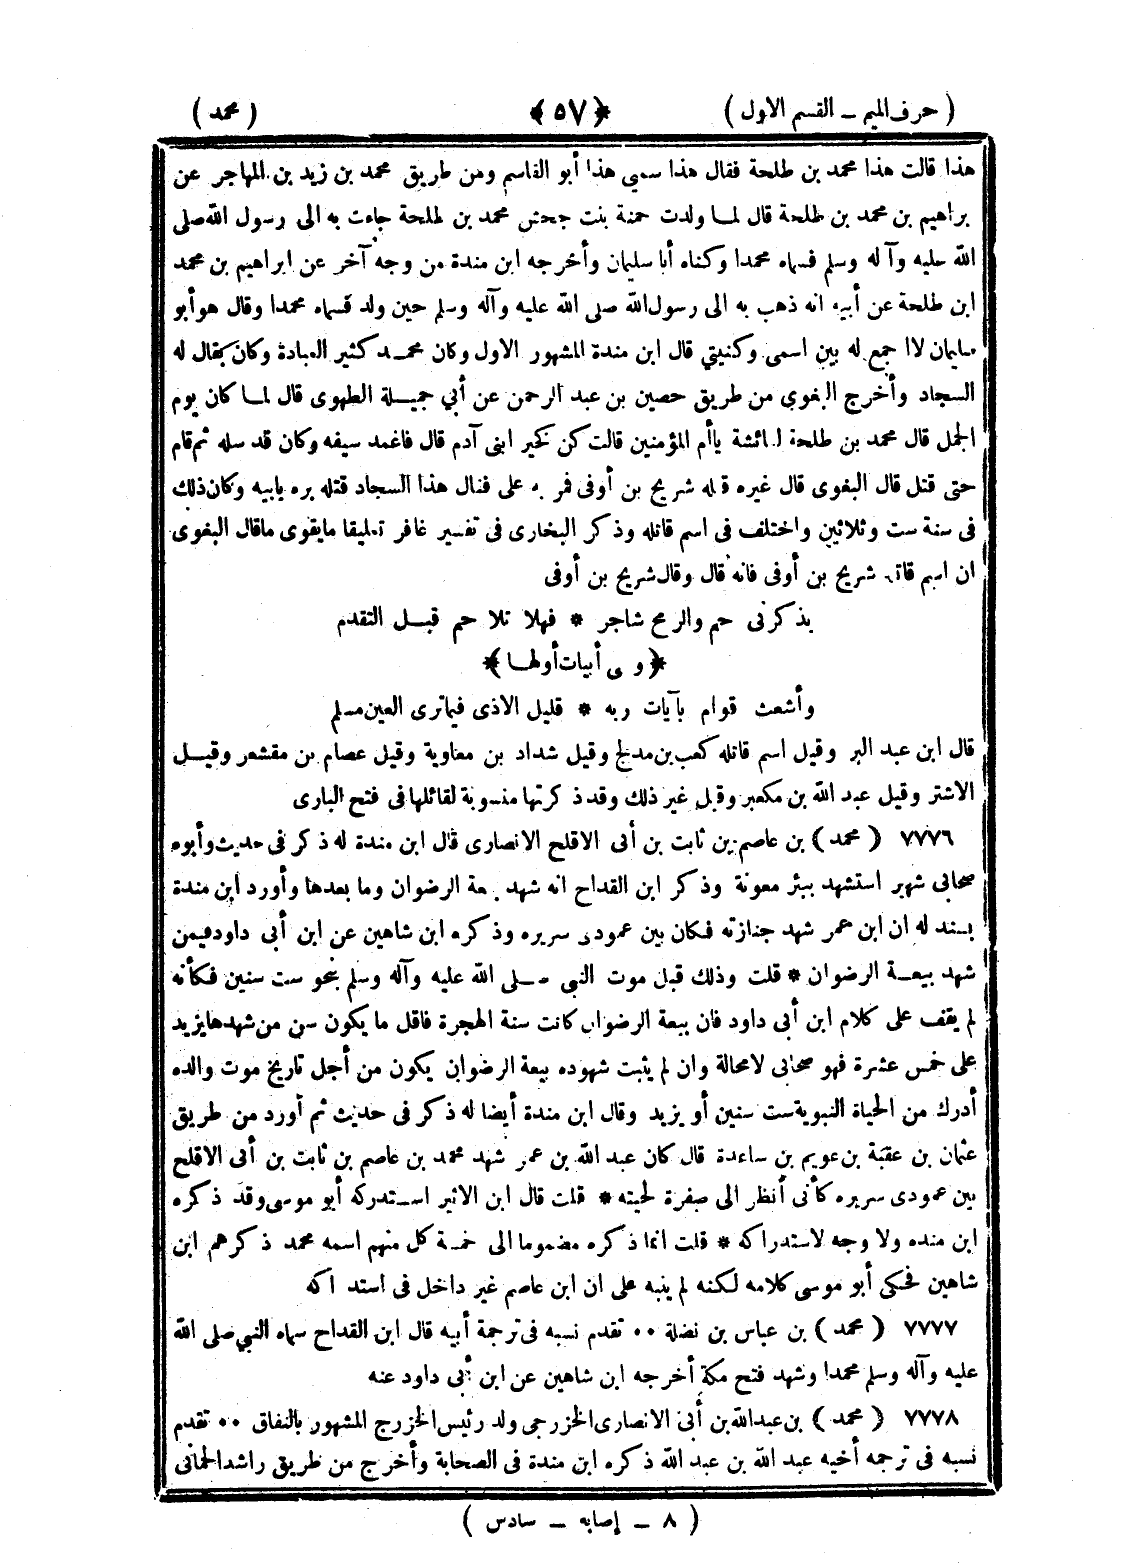 ( حرف الميم ــ القسم الاول ) ﴿ ٥٧ ﴾ ( محمد )
هذا قالت هذا محمد بن طلحة فقال هذا سمي هذا أبو القاسم ومن طريق محمد بن زيد بن المهاجر عن
براهيم بن محمد بن طلحة قال لمـا ولدت حمنة بنت جحش محمد بن طلحة جاءت به الى رسول الله صلى
الله عليه وآله وسلم فسماه محمدا وكناه أبا سليمان وأخرجه ابن مندة من وجه آخر عن ابراهيم بن محمد
ابن طلحة عن أبيه انه ذهب به الى رسول الله صلى الله عليه وآله وسلم حين ولد فسماه محمدا وقال هو أبو
سليمان لاا جمع له بين اسمى وكنيتي قال ابن مندة المشهور الاول وكان محمـد كثير العبادة وكان يقال له
السجاد وأخرج البغوى من طريق حصين بن عبد الرحمن عن أبي جميـلة الطهوى قال لمـا كان يوم
الجمل قال محمد بن طلحة لعائشة ياأم المؤمنين قالت كن كخير ابنى آدم قال فاغمد سيفه وكان قد سله ثم قام
حتى قتل قال البغوى قال غيره قتله شريح بن أوفى فمر به على فقال هذا السجاد قتله بره يابيه وكان ذلك
فى سنة ست وثلاثين واختلف فى اسم قاتله وذكر البخارى فى تفسير غافر تعليقا مايقوى ماقال البغوى
ان اسم قاتله شريح بن أوفى فانه قال وقال شريح بن أوفى
يذكرنى حم والرمح شاجر * فهلا تلا حم قبـل التقدم
﴿ وهى أبيات أولهـا ﴾
وأشعث قوام بآيات ربه * قليل الاذى فيماترى العين مسلم
قال ابن عبد البر وقيل اسم قاتله كعب بن مدلج وقيل شداد بن معاوية وقيل عصام بن مقشعر وقيـل
الاشتر وقيل عبد الله بن مكعبر وقيل غير ذلك وقد ذكرتها منسوبة لقائلها فى فتح البارى
٧٧٧٦ ( محمد ) بن عاصم بن ثابت بن أبى الاقلح الانصارى قال ابن مندة له ذكر فى حديث وأبوه
صحابى شهير استشهد ببئر معونة وذكر ابن القداح انه شهد بيعة الرضوان وما بعدها وأورد ابن مندة
بسند له ان ابن عمر شهد جنازته فكان بين عمودى سريره وذكره ابن شاهين عن ابن أبى داود فيمن
شهد بيعـة الرضوان * قلت وذلك قبل موت النبى صـلى الله عليه وآله وسلم بنحو ست سنين فكأنه
لم يقف على كلام ابن أبى داود فان بيعة الرضوان كانت سنة الهجرة فاقل ما يكون سن من شهدها يزيد
على خمس عشرة فهو صحابى لامحالة وان لم يثبت شهوده بيعة الرضوان يكون من أجل تاريخ موت والده
أدرك من الحياة النبوية ست سنين أو يزيد وقال ابن مندة أيضا له ذكر فى حديث ثم أورد من طريق
عثمان بن عقبة بن عويم بن ساعدة قال كان عبد الله بن عمر شهد محمد بن عاصم بن ثابت بن أبى الاقلح
بين عمودى سريره كأنى أنظر الى صفرة لحيته * قلت قال ابن الاثير اسـتدركه أبو موسى وقد ذكره
ابن منده ولا وجه لاستدراكه * قلت انما ذكره مضموما الى خمسة كل منهم اسمه محمد ذكرهم ابن
شاهين فحكى أبو موسى كلامه لكنه لم ينبه على ان ابن عاصم غير داخل فى استد اكه
٧٧٧٧ ( محمد ) بن عباس بن نضلة ٠٠ تقدم نسبه فى ترجمة أبيه قال ابن القداح سماه النبي صلى الله
عليه وآله وسلم محمدا وشهد فتح مكة أخرجه ابن شاهين عن ابن أبى داود عنه
٧٧٧٨ ( محمد ) بن عبد الله بن أبى الانصارى الخزرجى ولد رئيس الخزرج المشهور بالنفاق ٠٠ تقدم
نسبه فى ترجمه أخيه عبد الله بن عبد الله ذكره ابن مندة فى الصحابة وأخرج من طريق راشد الحمانى
( ٨ ــ إصابه ــ سادس )